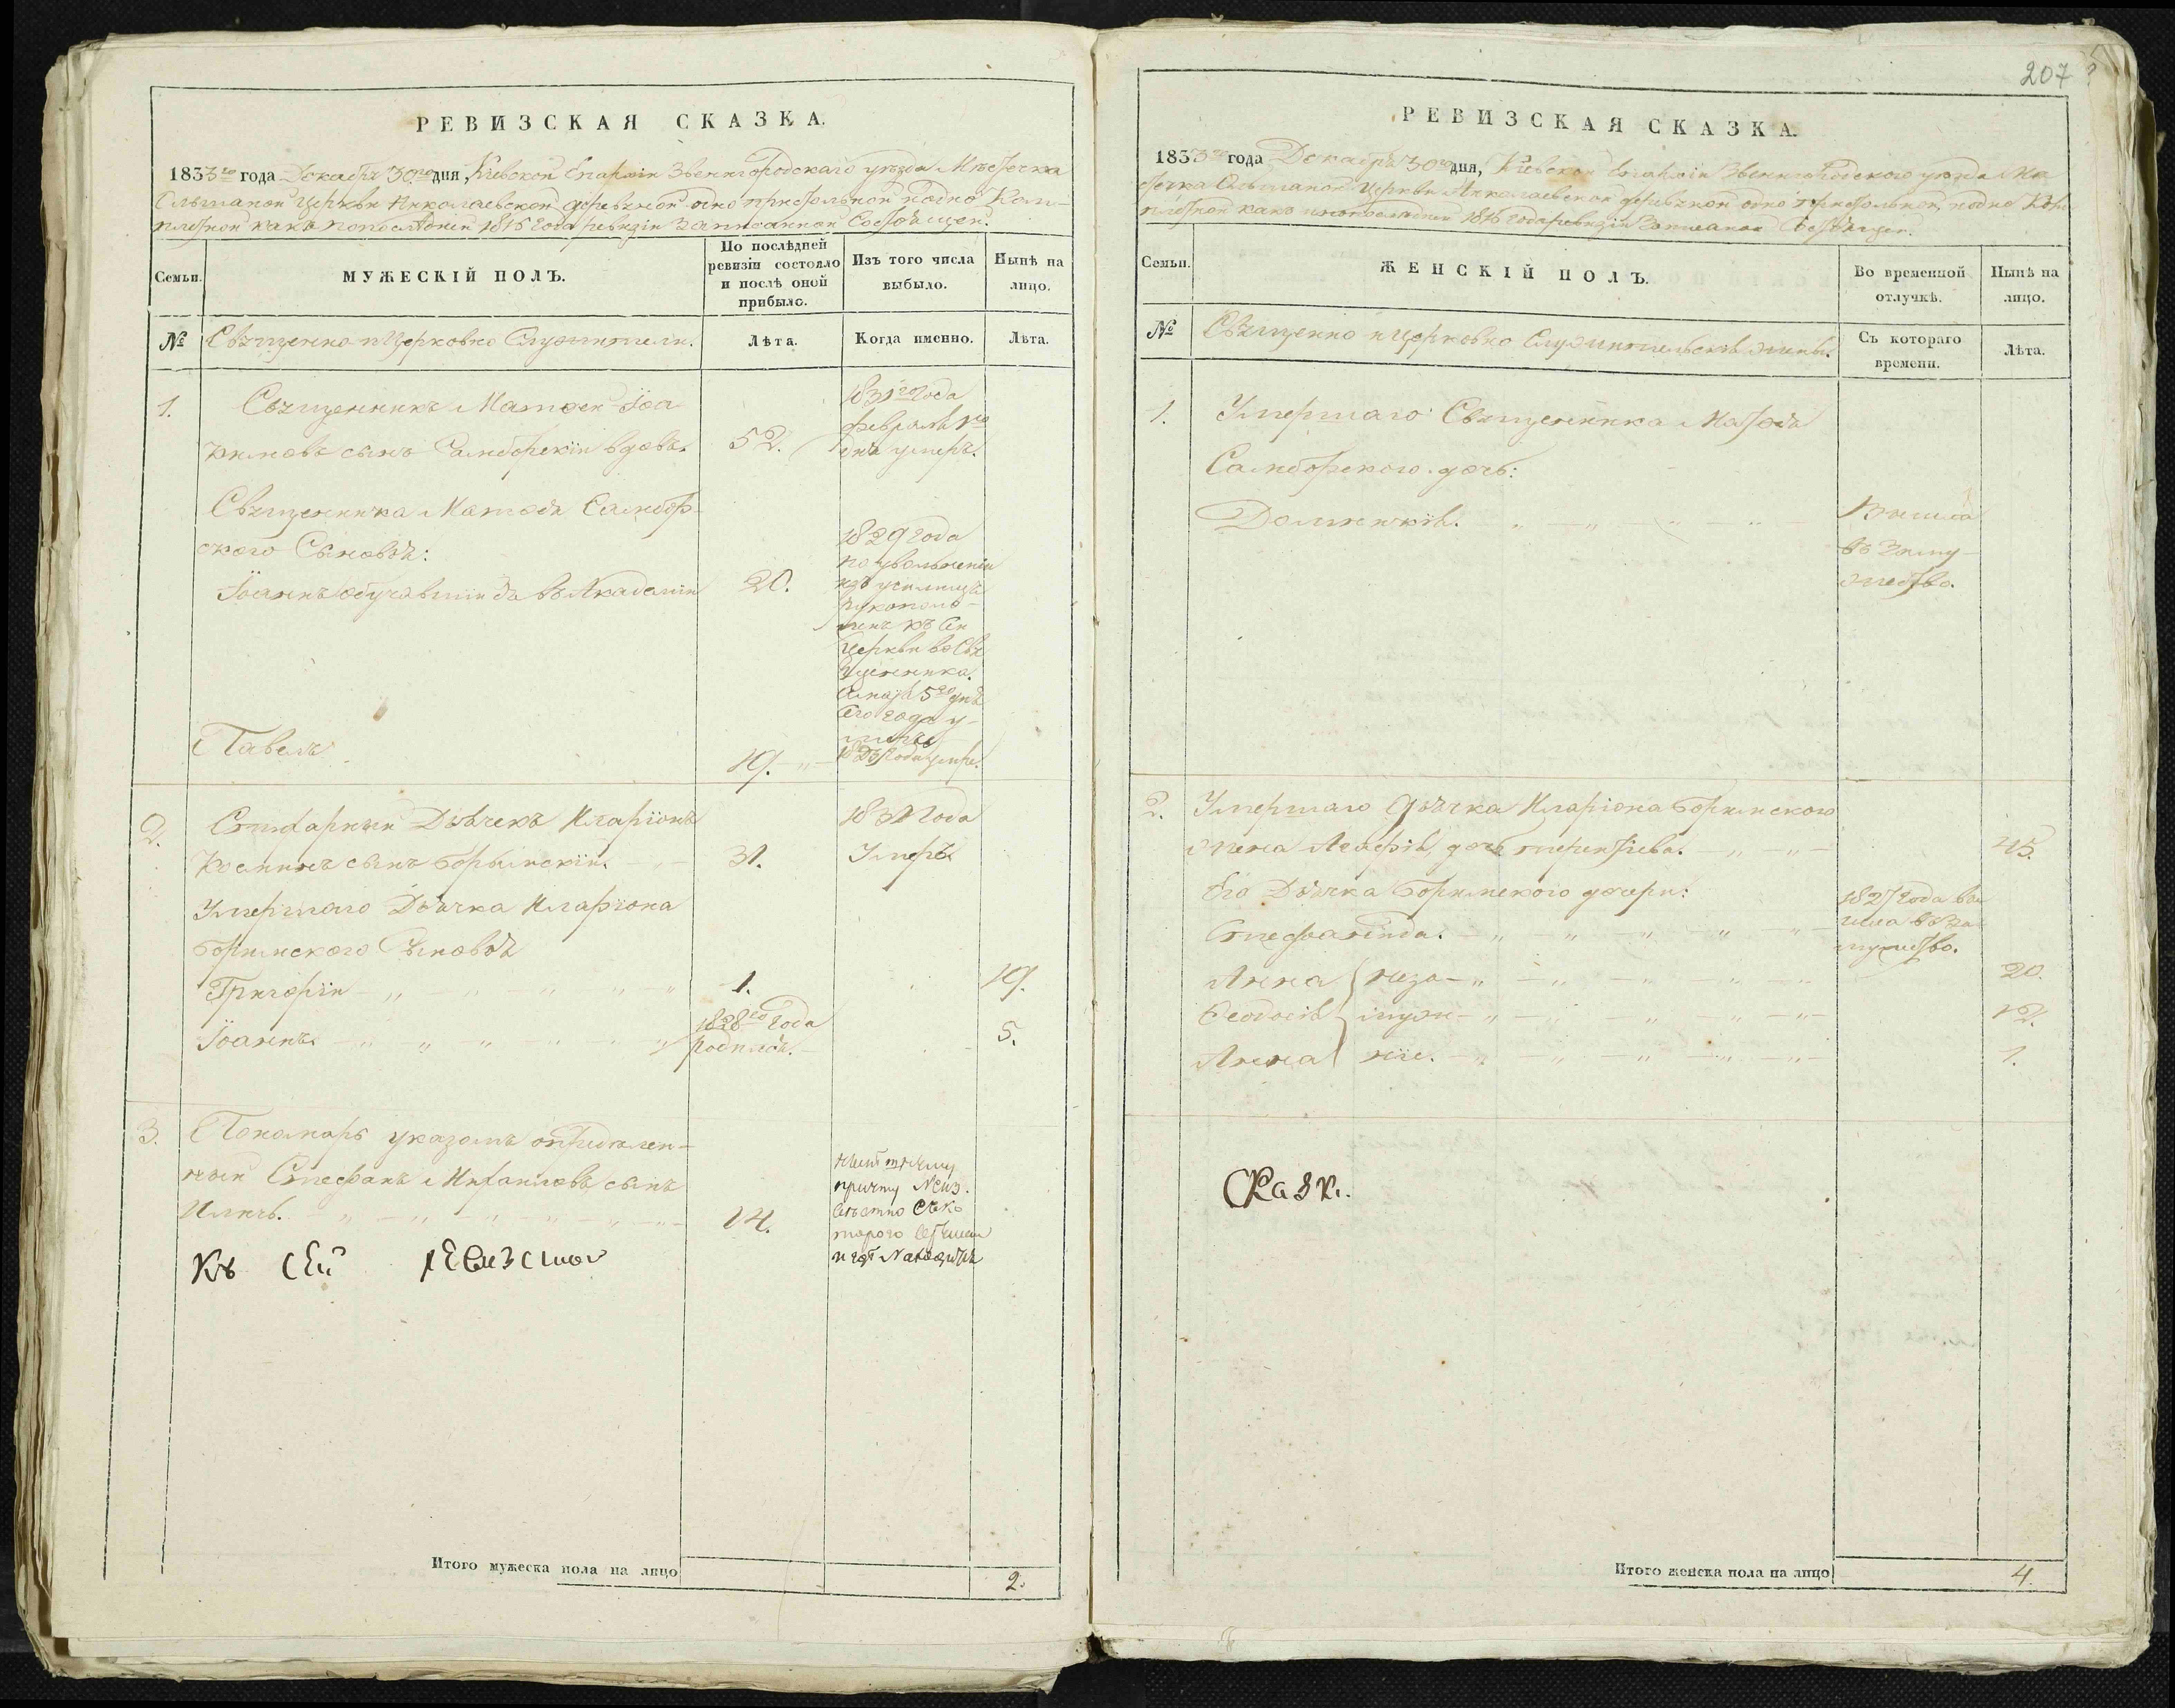 РЕВИЗСКАЯ СКАЗКА.
1833го года Декабря 30го дня, Кіевской Епархіи Звенигородскаго уѣзда Мѣстечка
Ольшаной Церкви Николаевской деревяной одно престольной подно Ком-
плетной какъ попослѣдней 1816 года ревизіи записанной Состоящей.
Семьи.
МУЖЕСКІЙ ПОЛЪ.
По послѣдней ревизіи состояло и послѣ оной прибыло.
Изъ того числа выбыло.
Нынѣ на лицо.
№
Священно и Церковно Служители.
Лѣта.
Когда именно.
Лѣта.
1.
Священникъ Матѳей Іоа
кимовъ сынъ Самборскій вдовъ.
52.
1831го года
февраля
дня умеръ.
Священника Матѳея Самбор-
ского Сыновья:
Іоаннъ обучавшійся въ Академіи
20.
1829 года
по увольненіи
изъ училища
рукополо-
женъ къ сей
Церкви во Свя
щенника.
а мая 5го дня
сего года у-
меръ
Павелъ
19.
года умре.
2.
Стихарный Дьячекъ Иларіонъ
сынъ Борымскій.
31.
1831 года
Умеръ
Умершаго Дьячка Иларіона
Борымского Сыновья
Григорій
1.
19.
Іоаннъ.
1828го года
родился.
5.
3.
Пономарь указомъ опредѣлен-
ный Стефанъ Михайловъ сынъ
14.
причту Неиз.
вѣстно съ ко
торого времени
и гдѣ Находится
Къ сей ревизской
Итого мужеска пола на лицо
2.
207
РЕВИЗСКАЯ СКАЗКА.
1833го года Декабря 30го дня, Кіевской Епархіи Звенигородского уѣзда Мѣ
стечка Ольшаной Церкви Николаевской деревяной одно престольной, подно Ком
плетной какъ попослѣдней 1816 года ревизіи Записаной Состоящей.
Семьи.
ЖЕНСКІЙ ПОЛЪ.
Во временной отлучкѣ.
Нынѣ на лицо.
№
Священно и Церковно Служительскія жены.
Съ котораго времени.
Лѣта.
1.
Умершаго Священника Матѳея
Самборского дочь:
Домникія.
Вышла
въ заму-
жество.
2.
Умершаго Дьячка Иларіона Борымского
жена Агафія, дочь Терентіева.
45.
Его Дьячка Борымского дочери:
Стефанида.
1827 года вы
шла въ за
мужество.
Анна
неза-
20.
Ѳеодосія
муж-
12.
Анна
ніе.
1.
Сказк.
Итого женска пола на лицо
4.